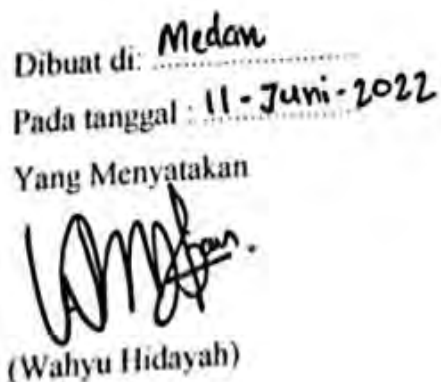 Dibuat di: Medan
Pada tanggal : 11 - Juni - 2022
Yang Menyatakan
(Wahyu Hidayah)